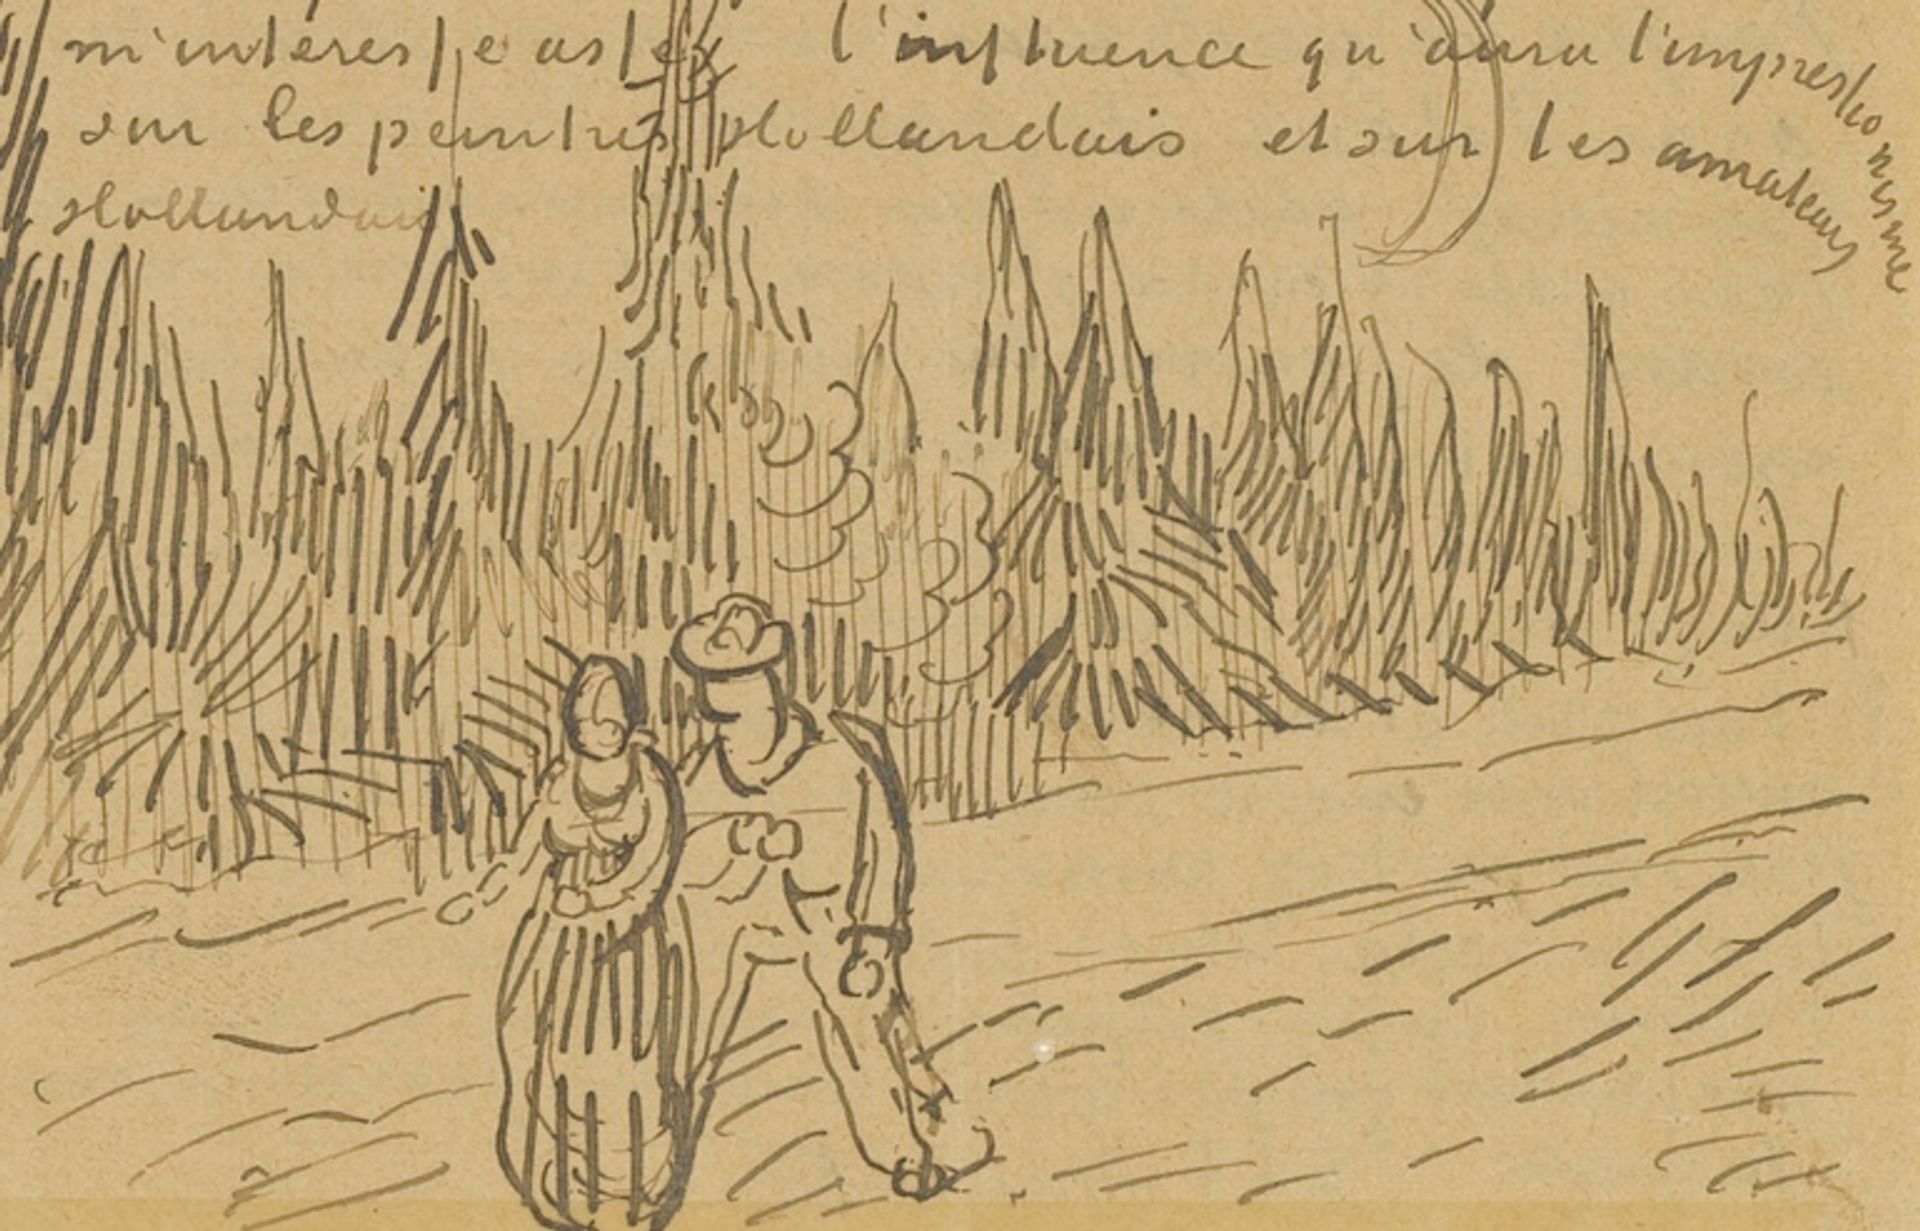 m'interesse assez l'influence qu'aura l'impressionisme
sur les peintres Hollandais et sur les amateurs
Hollandais